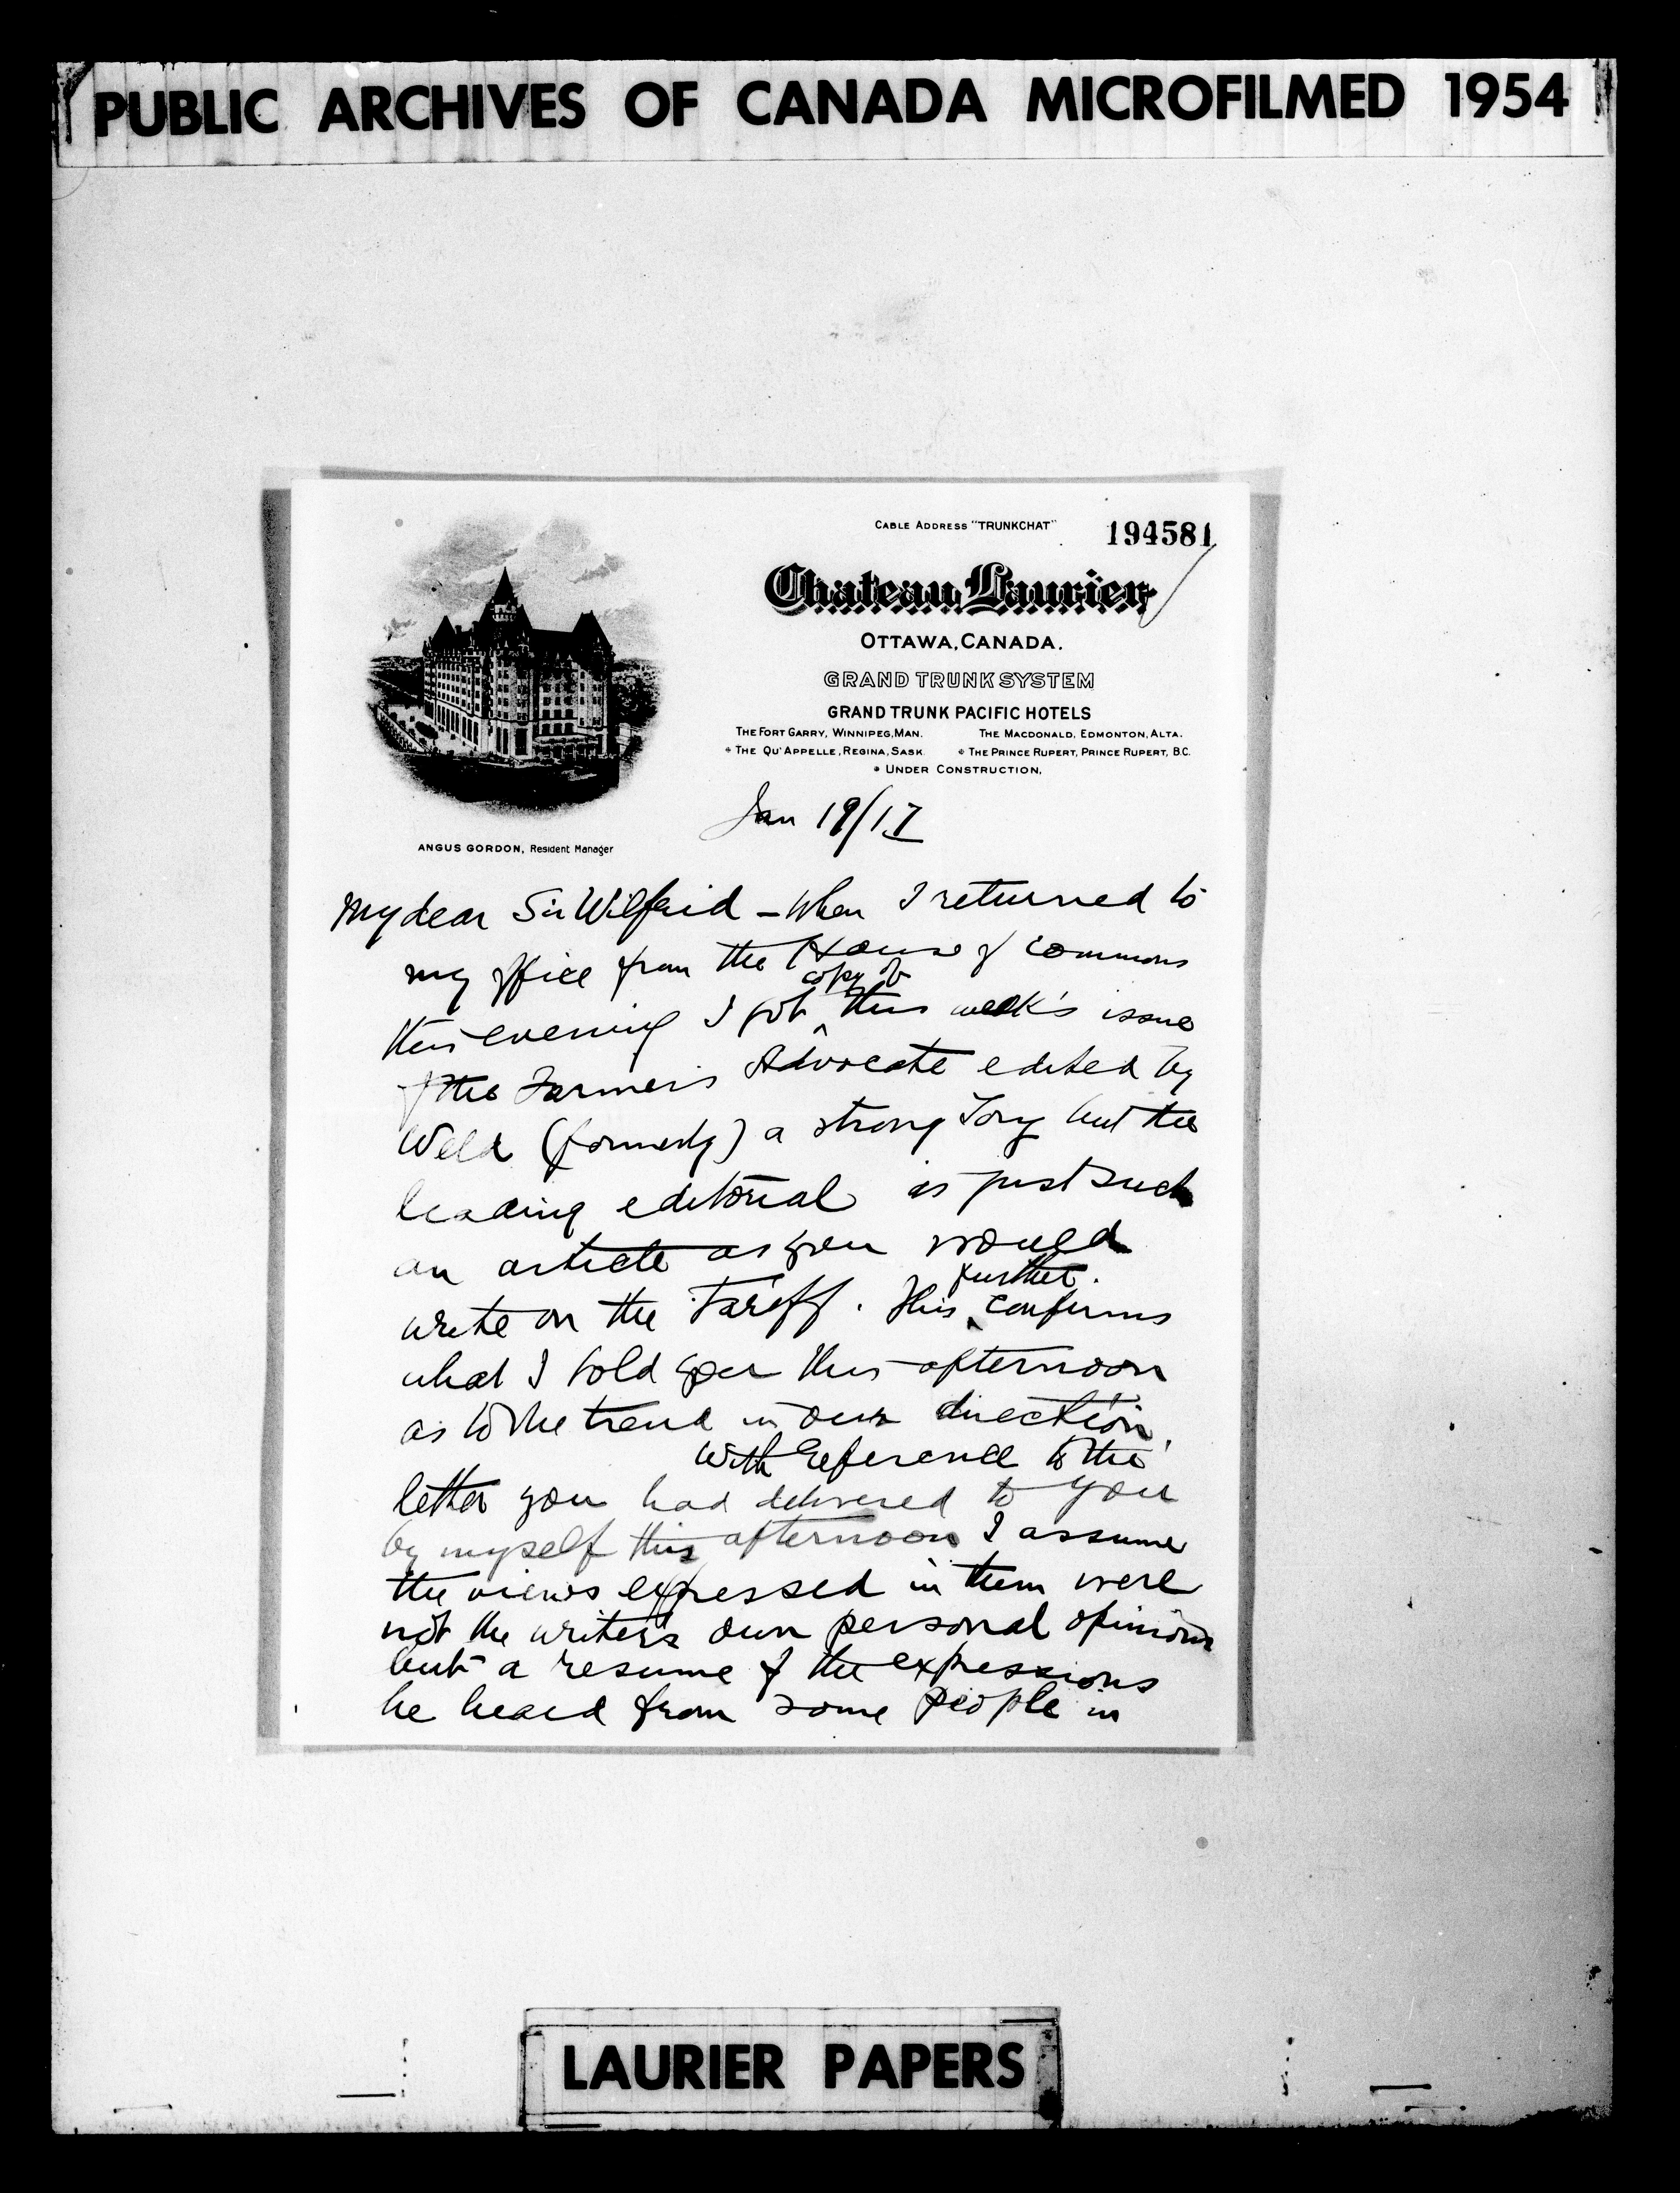 PUBLIC ARCHIVES OF CANADA MICROFILMED 1954
CABLE ADDRESS "TRUNKCHAT"
194581
Chateau Laurier
OTTAWA, CANADA.
GRAND TRUNK SYSTEM
GRAND TRUNK PACIFIC HOTELS
THE FORT GARRY, WINNIPEG, MAN. THE MACDONALD, EDMONTON, ALTA.
* THE QU'APPELLE, REGINA, SASK. * THE PRINCE RUPERT, PRINCE RUPERT, B.C.
* UNDER CONSTRUCTION,
ANGUS GORDON, Resident Manager
Jan 19/17
My dear Sir Wilfrid – When I returned to
my office from the House of Commons
copy of
this evening I got ^ this week's issue
of the Farmer's Advocate edited by
Weld (formerly) a strong Tory but the
leading editorial is just such
an article as you would
further
write on the Tariff. This ^ confirms
what I told you this afternoon
as to the trend in our direction.
With reference to the
letter you had delivered to you
by myself this afternoon I assume
the views expressed in them were
not the writer's own personal opinions
but a resume of the expressions
he heard from some people in
LAURIER PAPERS